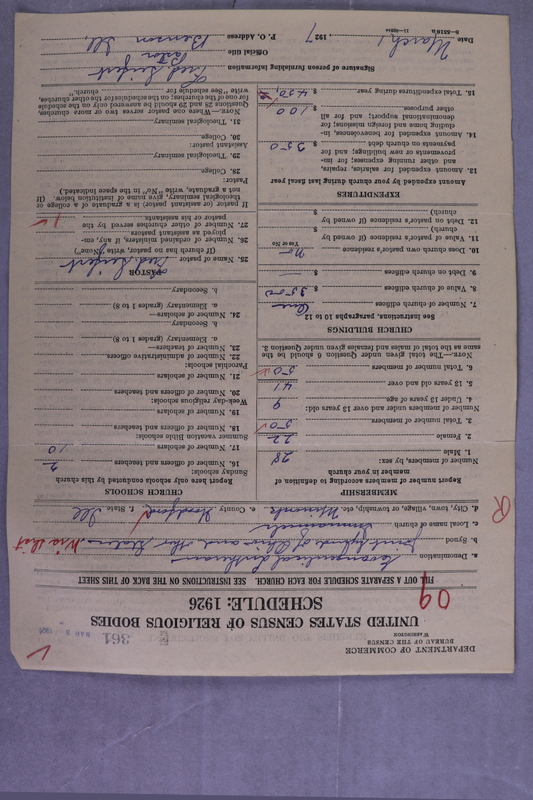 DEPARTMENT OF COMMERCE
BUREAU OF THE CENSUS
WASHINGTON
361
MAR 3 1927
UNITED STATES CENSUS OF RELIGIOUS BODIES
SCHEDULE: 1926
09
FILL OUT A SEPARATE SCHEDULE FOR EACH CHURCH. SEE INSTRUCTIONS ON THE BACK OF THIS SHEET
a. Denomination Evangelical Lutheran
b. Synod Joint Synod of Ohio and other States
c. Local name of church Immanuels
d. City, town, village, or township, etc. Minonk e. County Woodford f. State Ill
R
MEMBERSHIP
Report number of members according to definition of member in your church
Number of members, by sex:
1. Male 28
2. Female 22
3. Total number of members 50
Number of members under and over 13 years old:
4. Under 13 years of age 9
5. 13 years old and over 41
6. Total number of members 50
NOTE.—The total given under Question 6 should be the same as the total of males and females given under Question 3.
CHURCH BUILDINGS
See instructions, paragraphs 10 to 12
7. Number of church edifices One
8. Value of church edifices $ 3500
9. Debt on church edifices $ —
10. Does church own pastor's residence No
Yes or No
11. Value of pastor's residence (if owned by church) $
12. Debt on pastor's residence (if owned by church) $
EXPENDITURES
Amount expended by your church during last fiscal year
13. Amount expended for salaries, repairs, and other running expenses; for improvements or new buildings; and for payments on church debt $ 350
14. Amount expended for benevolences, including home and foreign missions; for denominational support; and for all other purposes $ 100
15. Total expenditures during year $ 450
CHURCH SCHOOLS
Report here only schools conducted by this church
Sunday schools:
16. Number of officers and teachers 2
17. Number of scholars 10
Summer vacation Bible schools:
18. Number of officers and teachers
19. Number of scholars
Week-day religious schools:
20. Number of officers and teachers
21. Number of scholars
Parochial schools:
22. Number of administrative officers
23. Number of teachers—
a. Elementary (grades 1 to 8)
b. Secondary
24. Number of scholars—
a. Elementary (grades 1 to 8)
b. Secondary
PASTOR
25. Name of pastor Fred. Seifert
(If church has no pastor, write "None")
26. Number of ordained ministers, if any, employed as assistant pastors
27. Number of other churches served by the pastor or his assistants 1
If pastor (or assistant pastor) is a graduate of a college or theological seminary, give name of institution below. (If not a graduate, write "No" in the space indicated.)
Pastor:
28. College
29. Theological seminary
Assistant pastor:
30. College
31. Theological seminary
NOTE.—When one pastor serves two or more churches, Questions 28 and 29 should be answered only on the schedule for one of the churches; on the schedules for the other churches, write "See schedule for church."
Signature of person furnishing information Fred. Seifert
Official title Pastor
Date March 1, 1927 P. O. Address Benson Ill.
8-5519a